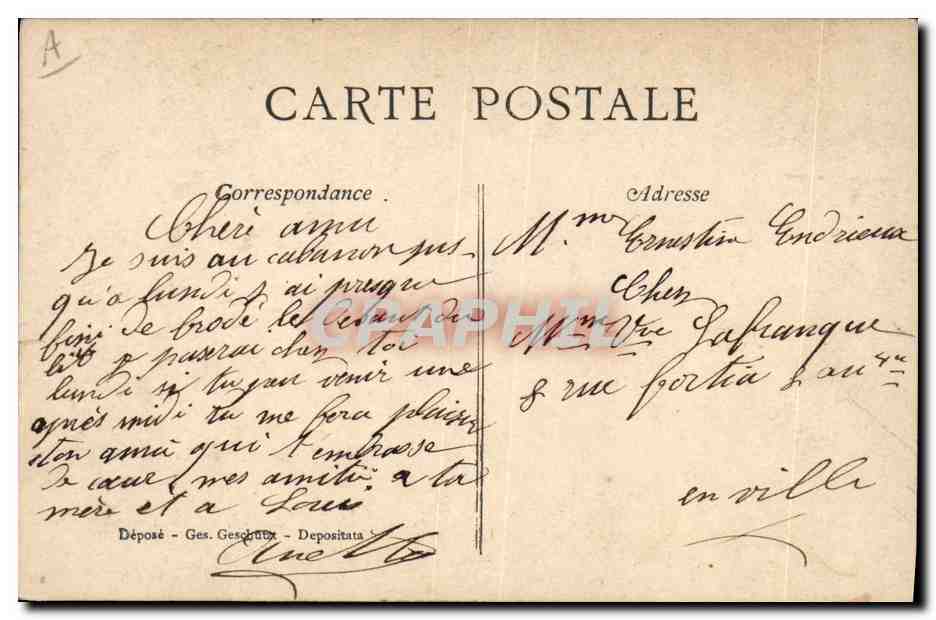 A
CARTE POSTALE
Correspondance.
Chère amie
Je suis au cabanon jus-
qu'a lundi j ai presque
fini de brodé le devant du
lit je passerai chez toi
lundi si tu peu venir une
après midi tu me fera plaisir
ton amie qui t'embrasse
de cœur mes amitié a ta
mère et a Louis
Anetta
Déposé - Ges. Geschützt - Depositata
Adresse
Mme Ernestine Endrieux
Chez
Mme Vve Lafranque
8 rue fortia 8 au 4me
en ville
CPAPHIL